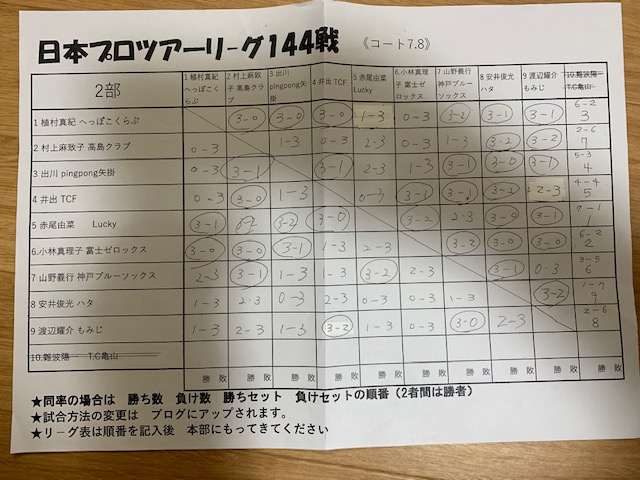 日本プロツアーリーグ144戦 《コート7.8》
2部 1 植村真紀 へっぽこくらぶ 2 村上麻致子 高島クラブ 3 出川 pingpong矢掛 4 井出 TCF 5 赤尾由菜 Lucky 6.小林真理子 富士ゼロックス 7 山野義行 神戸ブルーソックス 8 安井俊光 ハタ 9 渡辺耀介 もみじ 10.難波陽一 T.C亀山
1 植村真紀 へっぽこくらぶ 3-0 3-0 3-0 1-3 0-3 3-2 3-1 3-1 6-2 3
2 村上麻致子 高島クラブ 0-3 1-3 0-3 2-3 0-3 1-3 3-2 3-2 2-6 7
3 出川 pingpong矢掛 0-3 3-1 3-1 2-3 1-3 3-1 3-0 3-1 5-3 4
4 井出 TCF 0-3 3-0 1-3 0-3 3-1 3-1 3-2 2-3 4-4 5
5 赤尾由菜 Lucky 3-1 3-2 3-0 3-2 2-3 3-0 3-1 7-1 1
6.小林真理子 富士ゼロックス 3-0 3-0 3-1 1-3 2-3 3-2 3-0 3-0 6-2 2
7 山野義行 神戸ブルーソックス 2-3 3-1 1-3 1-3 3-2 2-3 3-1 0-3 3-5 6
8 安井俊光 ハタ 1-3 2-3 0-3 2-3 0-3 0-3 1-3 3-2 1-7 9
9 渡辺耀介 もみじ 1-3 2-3 1-3 3-2 1-3 0-3 3-0 2-3 2-6 8
10.難波陽一 T.C亀山
勝 敗 勝 敗 勝 敗 勝 敗 勝 敗 勝 敗 勝 敗 勝 敗 勝 敗 勝 敗
★同率の場合は 勝ち数 負け数 勝ちセット 負けセットの順番（2者間は勝者）
★試合方法の変更は ブログにアップされます。
★リーグ表は順番を記入後 本部にもってきてください